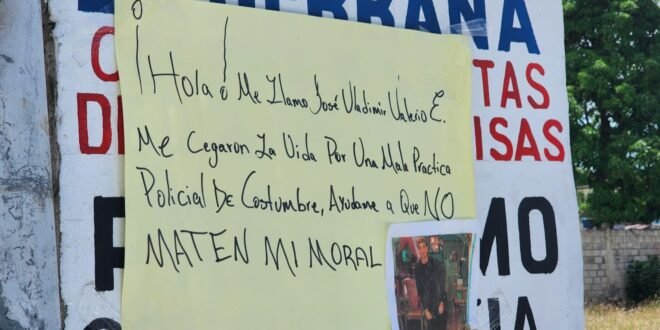 RRANA
¡Hola! ó Me Llamo José Vladimir Valerio E.
TAS
Me Cegaron La Vida Por Una Mala Practica
DE
ISAS
Policial De Costumbre, Ayudame a Que NO
MATEN MI MORAL
MO
IA